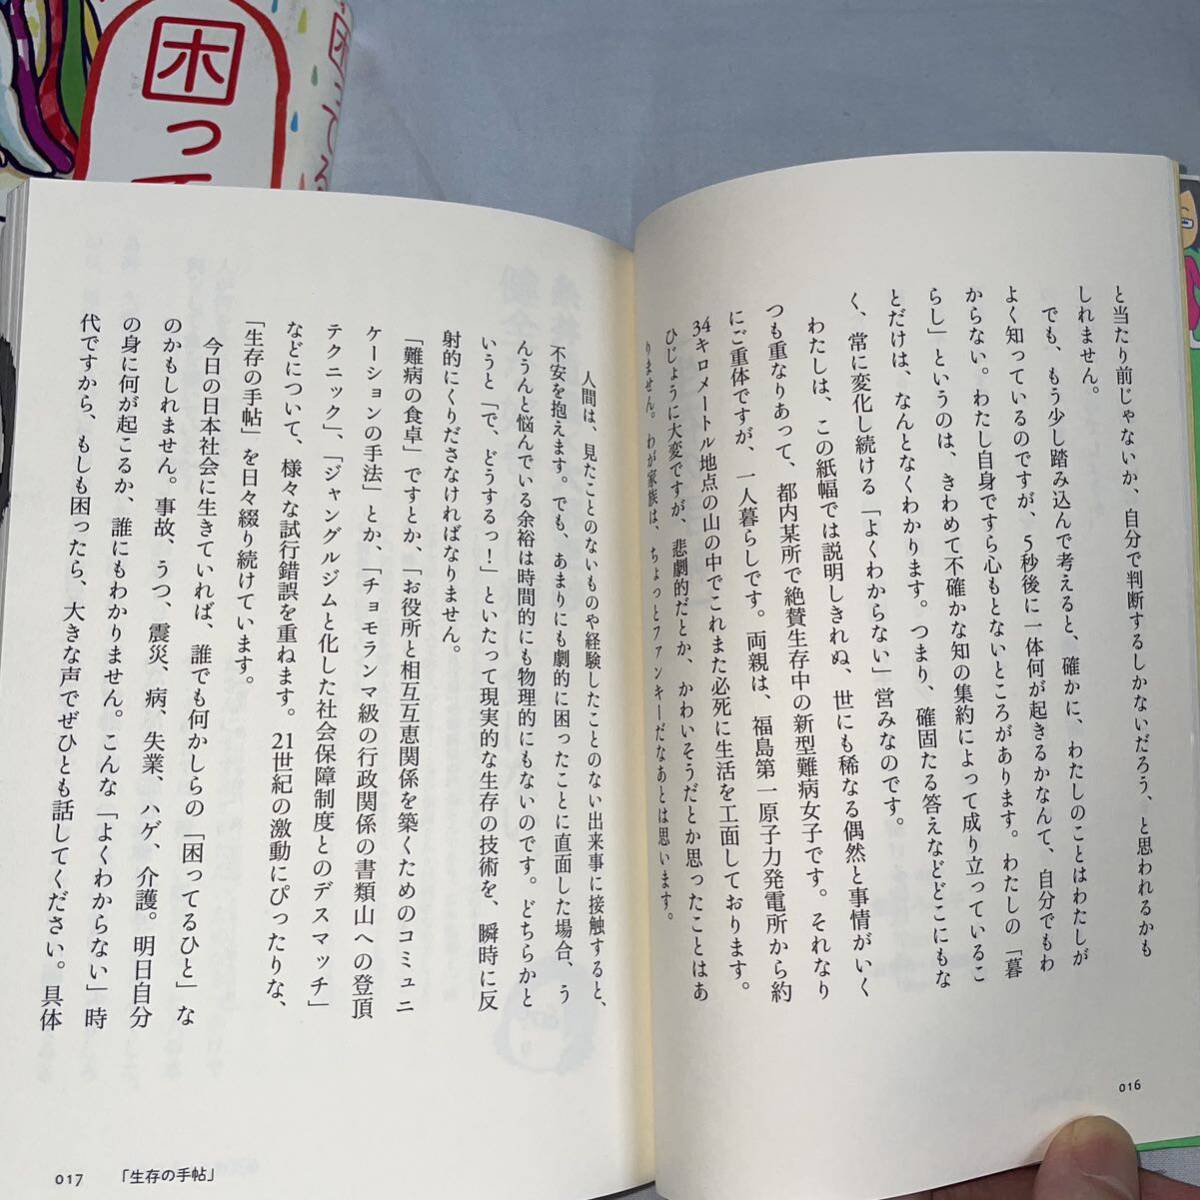 困って
困ってる
と当たり前じゃないか、自分で判断するしかないだろう、と思われるかも
しれません。
でも、もう少し踏み込んで考えると、確かに、わたしのことはわたしが
よく知っているのですが、5秒後に一体何が起きるかなんて、自分でもわ
からない。わたし自身ですら心もとないところがあります。わたしの「暮
らし」というのは、きわめて不確かな知の集約によって成り立っているこ
とだけは、なんとなくわかります。つまり、確固たる答えなどどこにもな
く、常に変化し続ける「よくわからない」営みなのです。
わたしは、この紙幅では説明しきれぬ、世にも稀なる偶然と事情がいく
つも重なりあって、都内某所で絶賛生存中の新型難病女子です。それなり
にご重体ですが、一人暮らしです。両親は、福島第一原子力発電所から約
34キロメートル地点の山の中でこれまた必死に生活を工面しております。
ひじょうに大変ですが、悲劇的だとか、かわいそうだとか思ったことはあ
りません。わが家族は、ちょっとファンキーだなあとは思います。
016
人間は、見たことのないものや経験したことのない出来事に接触すると、
不安を抱えます。でも、あまりにも劇的に困ったことに直面した場合、う
んうんと悩んでいる余裕は時間的にも物理的にもないのです。どちらかと
いうと「で、どうするっ!」といたって現実的な生存の技術を、瞬時に反
射的にくりださなければなりません。
「難病の食卓」ですとか、「お役所と相互互恵関係を築くためのコミュニ
ケーションの手法」とか、「チョモランマ級の行政関係の書類山への登頂
テクニック」、「ジャングルジムと化した社会保障制度とのデスマッチ」
などについて、様々な試行錯誤を重ねます。21世紀の激動にぴったりな、
「生存の手帖」を日々綴り続けています。
今日の日本社会に生きていれば、誰でも何かしらの「困ってるひと」な
のかもしれません。事故、うつ、震災、病、失業、ハゲ、介護。明日自分
の身に何が起こるか、誰にもわかりません。こんな「よくわからない」時
代ですから、もしも困ったら、大きな声でぜひとも話してください。具体
017 「生存の手帖」